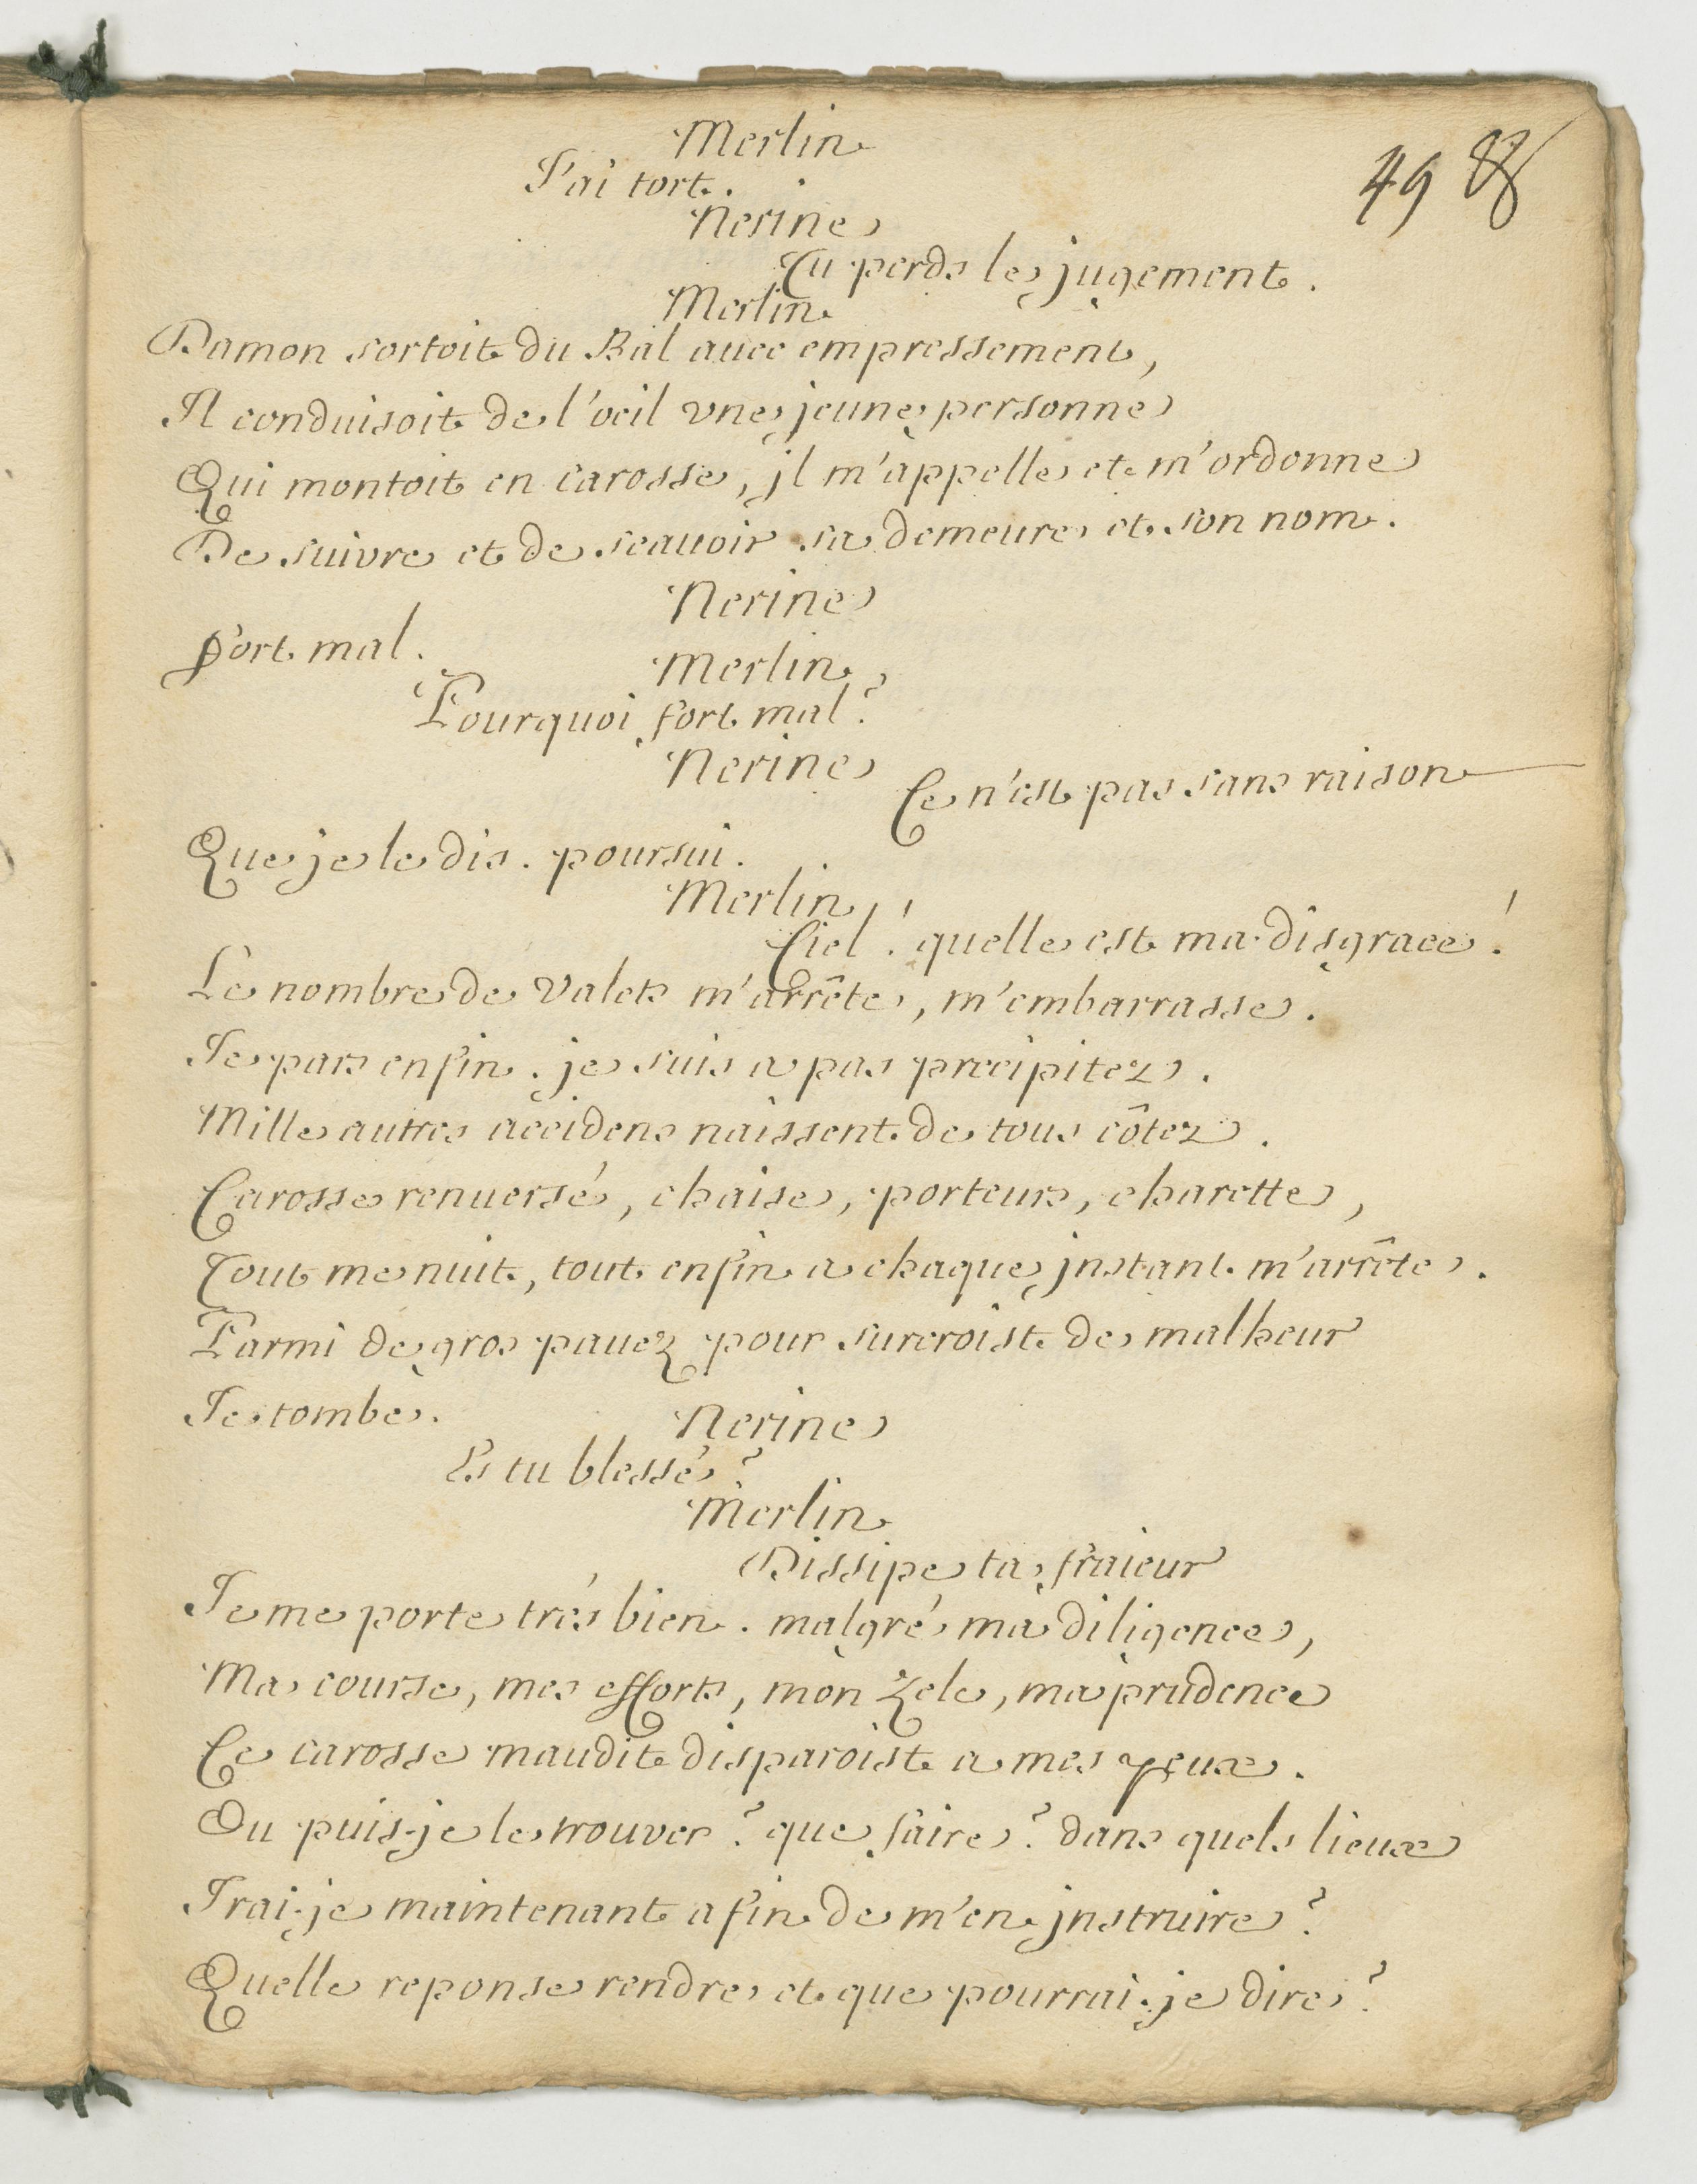 49 88
Merlin
J'ai tort.
Nerine
Tu perds le jugement.
Merlin
Damon sortoit du Bal auec empressement,
Il conduisoit de l'oeil vne jeune personne
Qui montoit en carosse, jl m'appelle et m'ordonne
De suivre et de scauoir sa demeure et son nom.
Nerine
Fort mal.
Merlin
Pourquoi fort mal?
Nerine
Ce n'est pas sans raison
Que je le dis. poursui.
Merlin
Ciel! quelle est ma disgrace!
Le nombre de Valets m'arrête, m'embarrasse.
Je pars enfin. je suis a pas precipitez.
Mille autres accidens naissent de tous côtez.
Carosse renuersé, chaise, porteurs, charette,
Tout me nuit, tout enfin a chaque jnstant m'arrête.
Parmi de gros pauez pour surcroist de malheur
Je tombe.
Nerine
Es tu blessé?
Merlin
Dissipe ta fraieur
Je me porte trés bien. malgré ma diligence,
Ma course, mes efforts, mon zele, ma prudence
Ce carosse maudit disparoist a mes yeux.
Ou puis-je le trouver? que faire? dans quels lieux
Irai-je maintenant afin de m'en jnstruire?
Quelle reponse rendre et que pourrai-je dire?